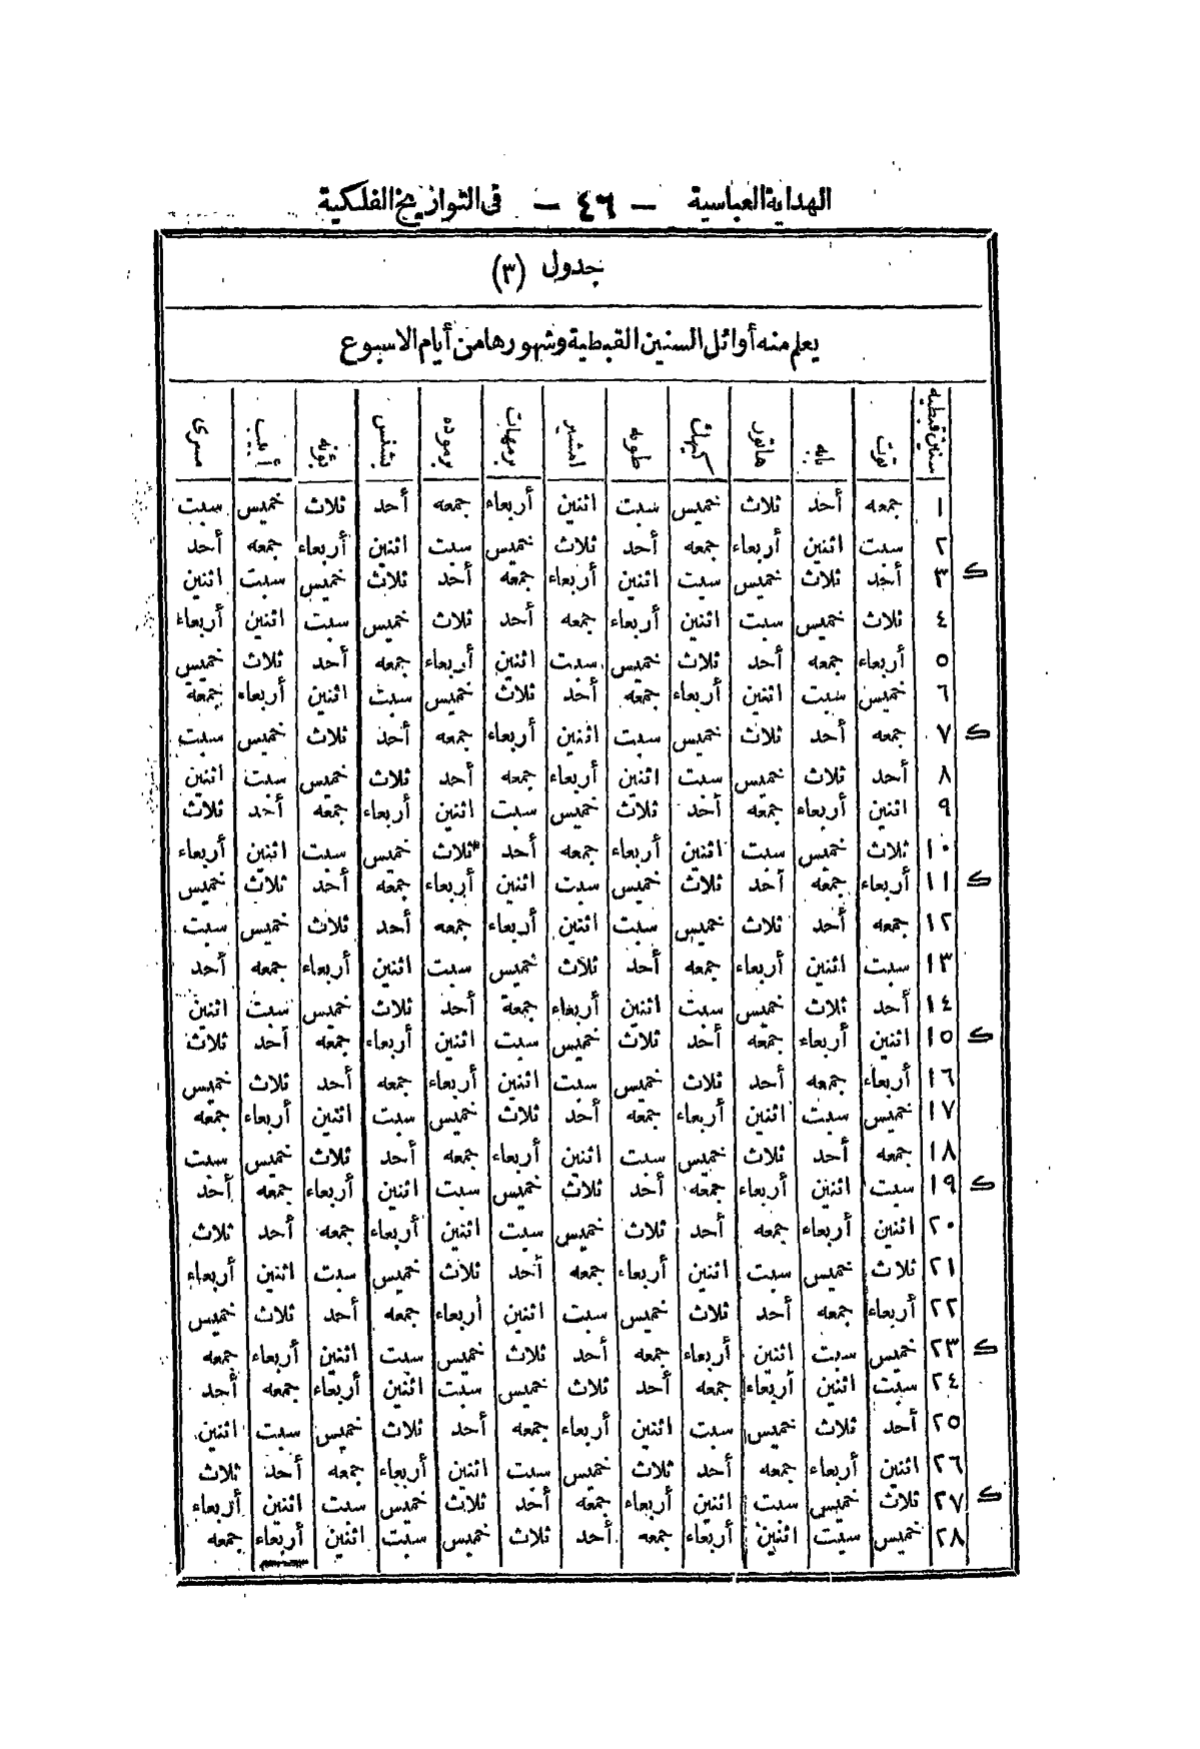 الهداية العباسية — ٤٦ — فى التواريخ الفلكية
جدول (٣)
يعلم منه أوائل السنين القبطية وشهورها من أيام الاسبوع
سنين قبطيه توت بابه هاتور كيهك طوبه امشير برمهات برموده بشنس بؤنه أبيب مسرى
١ جمعه أحد ثلاث خميس سبت اثنين أربعاء جمعه أحد ثلاث خميس سبت
٢ سبت اثنين أربعاء جمعه أحد ثلاث خميس سبت اثنين أربعاء جمعه أحد
ك ٣ أحد ثلاث خميس سبت اثنين أربعاء جمعه أحد ثلاث خميس سبت اثنين
٤ ثلاث خميس سبت اثنين أربعاء جمعه أحد ثلاث خميس سبت اثنين أربعاء
٥ أربعاء جمعه أحد ثلاث خميس سبت اثنين أربعاء جمعه أحد ثلاث خميس
٦ خميس سبت اثنين أربعاء جمعه أحد ثلاث خميس سبت اثنين أربعاء جمعة
ك ٧ جمعه أحد ثلاث خميس سبت اثنين أربعاء جمعه أحد ثلاث خميس سبت
٨ أحد ثلاث خميس سبت اثنين أربعاء جمعه أحد ثلاث خميس سبت اثنين
٩ اثنين أربعاء جمعه أحد ثلاث خميس سبت اثنين أربعاء جمعه أحد ثلاث
١٠ ثلاث خميس سبت اثنين أربعاء جمعه أحد ثلاث خميس سبت اثنين أربعاء
ك ١١ أربعاء جمعه أحد ثلاث خميس سبت اثنين أربعاء جمعه أحد ثلاث خميس
١٢ جمعه أحد ثلاث خميس سبت اثنين أربعاء جمعه أحد ثلاث خميس سبت
١٣ سبت اثنين أربعاء جمعه أحد ثلاث خميس سبت اثنين أربعاء جمعه أحد
١٤ أحد ثلاث خميس سبت اثنين أربعاء جمعة أحد ثلاث خميس سبت اثنين
ك ١٥ اثنين أربعاء جمعه أحد ثلاث خميس سبت اثنين أربعاء جمعه أحد ثلاث
١٦ أربعاء جمعه أحد ثلاث خميس سبت اثنين أربعاء جمعه أحد ثلاث خميس
١٧ خميس سبت اثنين أربعاء جمعه أحد ثلاث خميس سبت اثنين أربعاء جمعه
١٨ جمعه أحد ثلاث خميس سبت اثنين أربعاء جمعه أحد ثلاث خميس سبت
ك ١٩ سبت اثنين أربعاء جمعه أحد ثلاث خميس سبت اثنين أربعاء جمعه أحد
٢٠ اثنين أربعاء جمعه أحد ثلاث خميس سبت اثنين أربعاء جمعه أحد ثلاث
٢١ ثلاث خميس سبت اثنين أربعاء جمعه أحد ثلاث خميس سبت اثنين أربعاء
٢٢ أربعاء جمعه أحد ثلاث خميس سبت اثنين أربعاء جمعه أحد ثلاث خميس
ك ٢٣ خميس سبت اثنين أربعاء جمعه أحد ثلاث خميس سبت اثنين أربعاء جمعه
٢٤ سبت اثنين أربعاء جمعه أحد ثلاث خميس سبت اثنين أربعاء جمعه أحد
٢٥ أحد ثلاث خميس سبت اثنين أربعاء جمعه أحد ثلاث خميس سبت اثنين
٢٦ اثنين أربعاء جمعه أحد ثلاث خميس سبت اثنين أربعاء جمعه أحد ثلاث
ك ٢٧ ثلاث خميس سبت اثنين أربعاء جمعه أحد ثلاث خميس سبت اثنين أربعاء
٢٨ خميس سبت اثنين أربعاء جمعه أحد ثلاث خميس سبت اثنين أربعاء جمعه